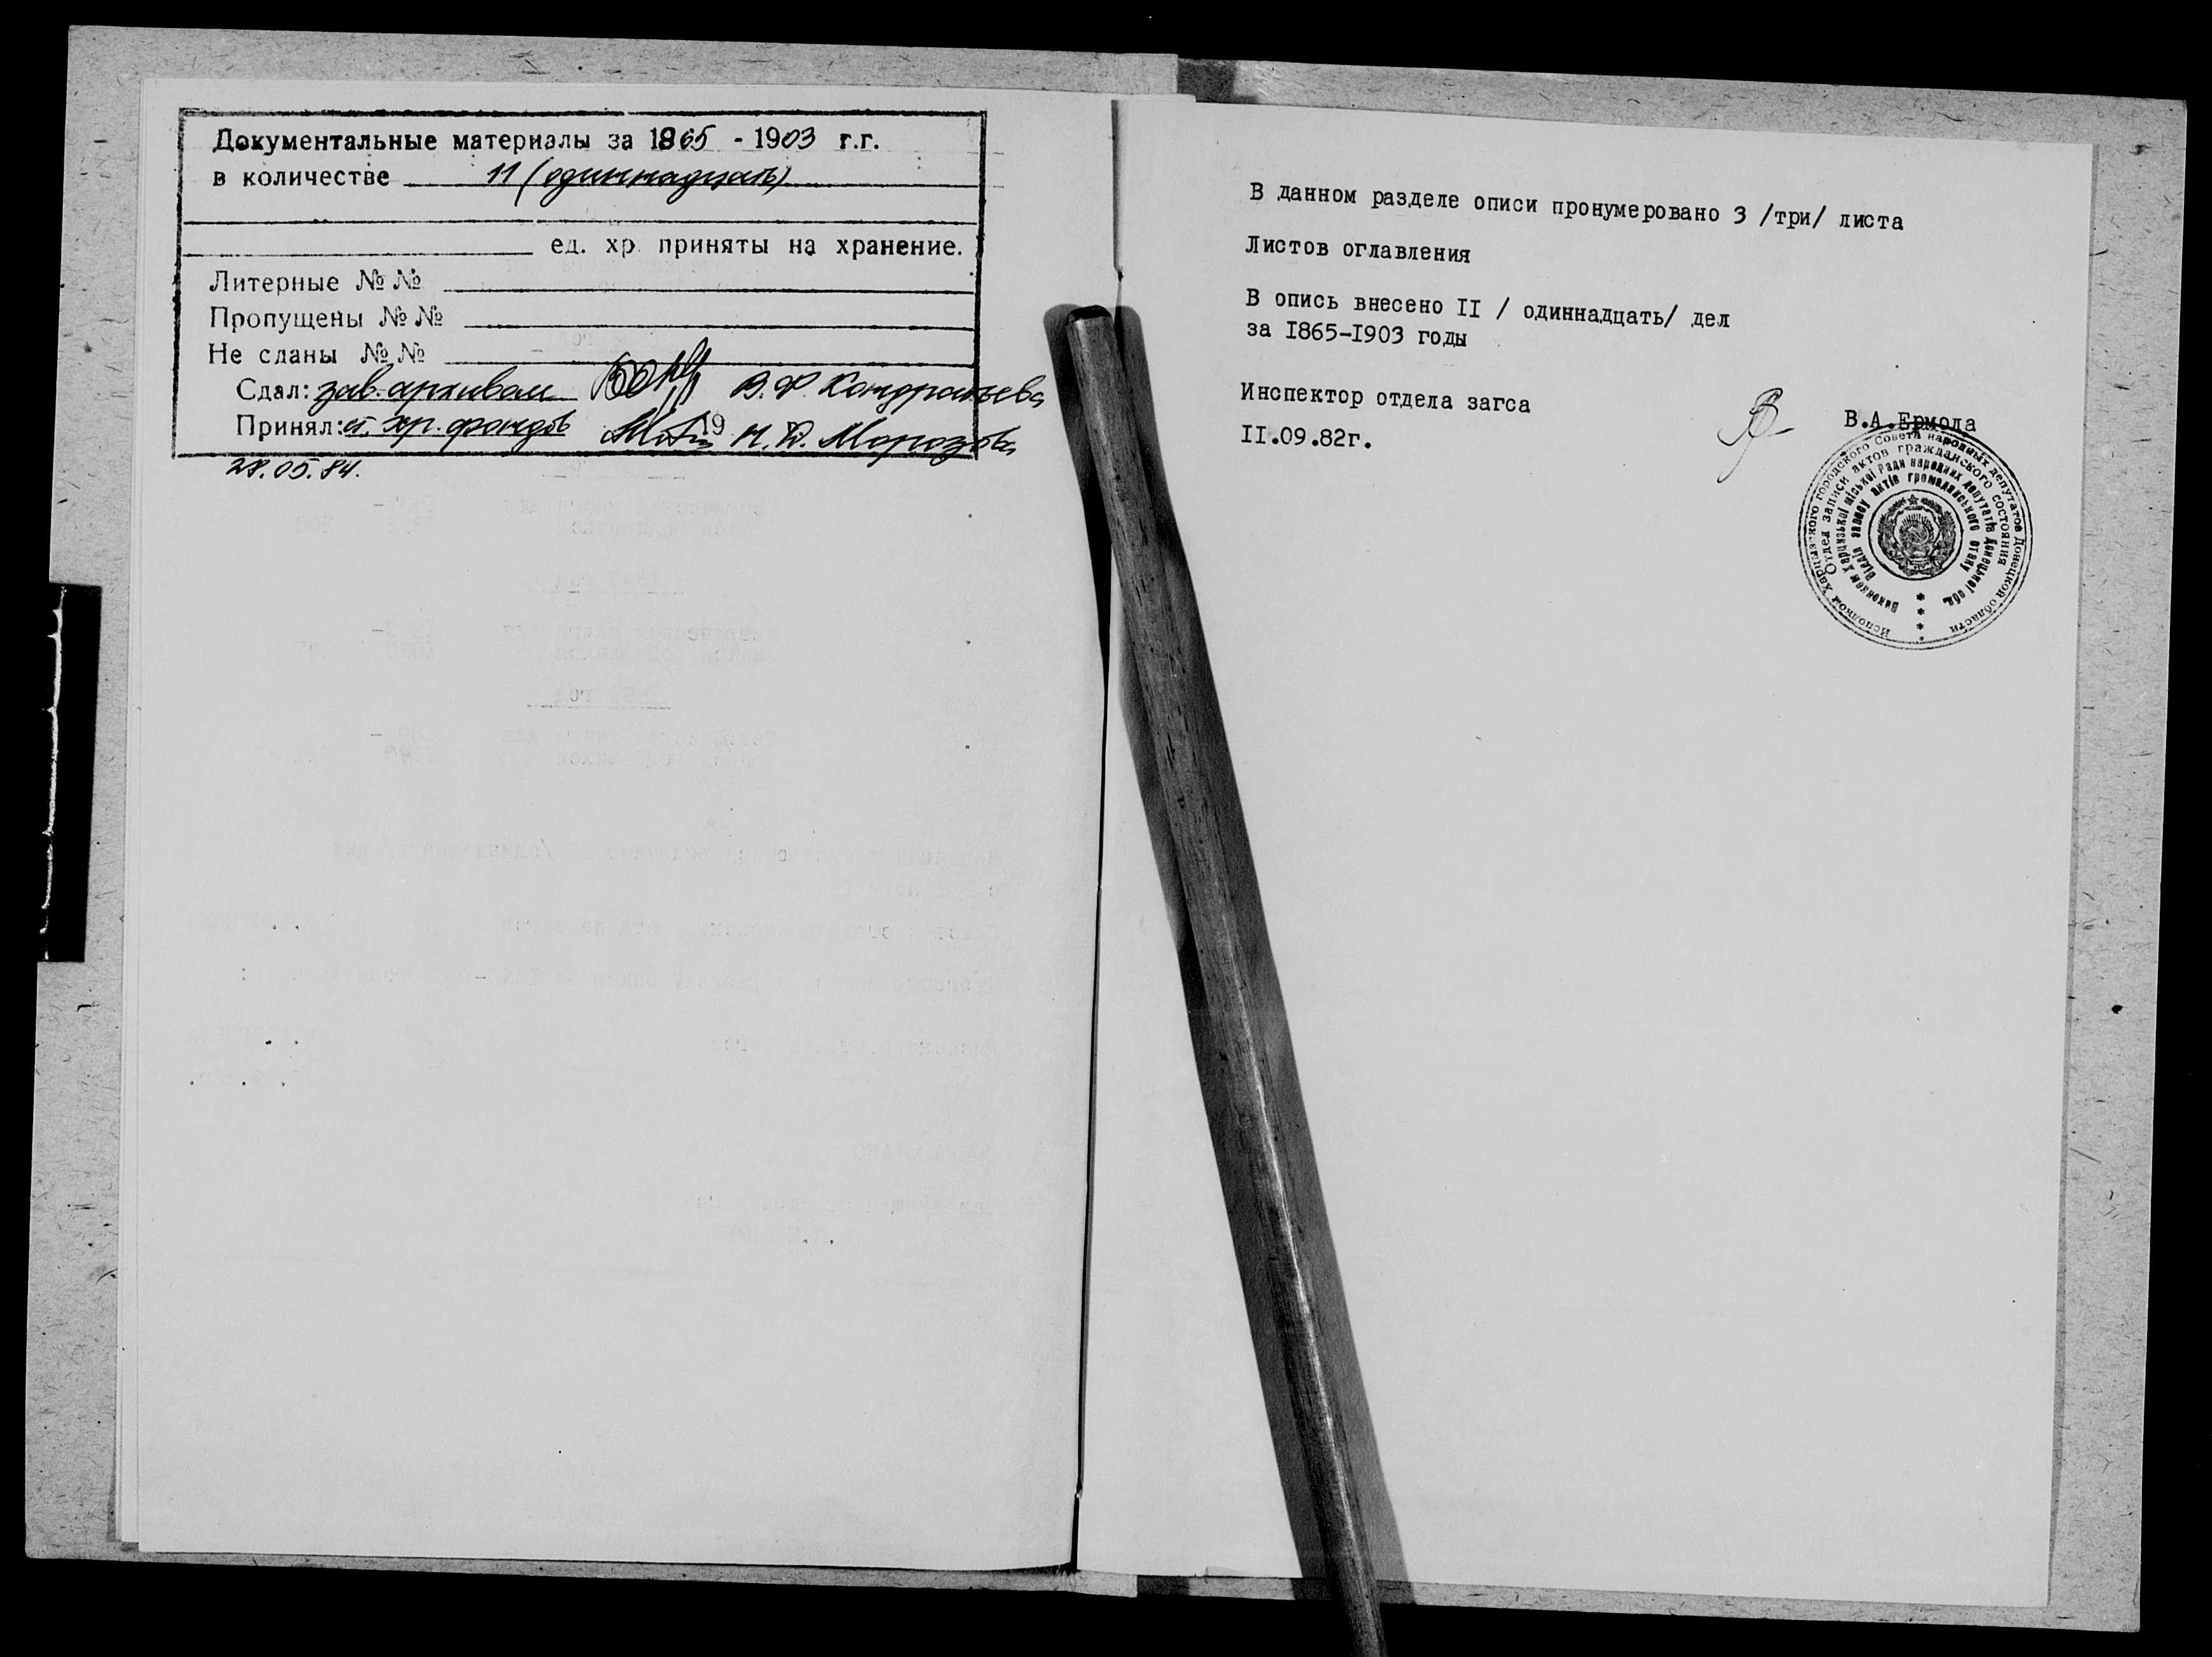 Документальные материалы за 1865 - 1903 г.г.
в количестве 11 (одиннадцать)
ед. хр. приняты на хранение.
Литерные №№
Пропущены №№
Не сданы №№
Сдал: зав. архивом В.Ф. Кондратьева
Принял: ст. хр. фондов 19 Н.Д. Морозова
28.05.84.
В данном разделе описи пронумеровано 3 /три/ листа
Листов оглавления
В опись внесено II / одиннадцать/ дел
за I865-I903 годы
Инспектор отдела загса
В.А.Ермола
II.09.82г.
Исполком Харцызского городского Совета народных депутатов Донецкой области
Отдел записи актов гражданского состояния
Виконком Харцизької міської Ради народних депутатів Донецької обл.
Відділ запису актів громадянського стану